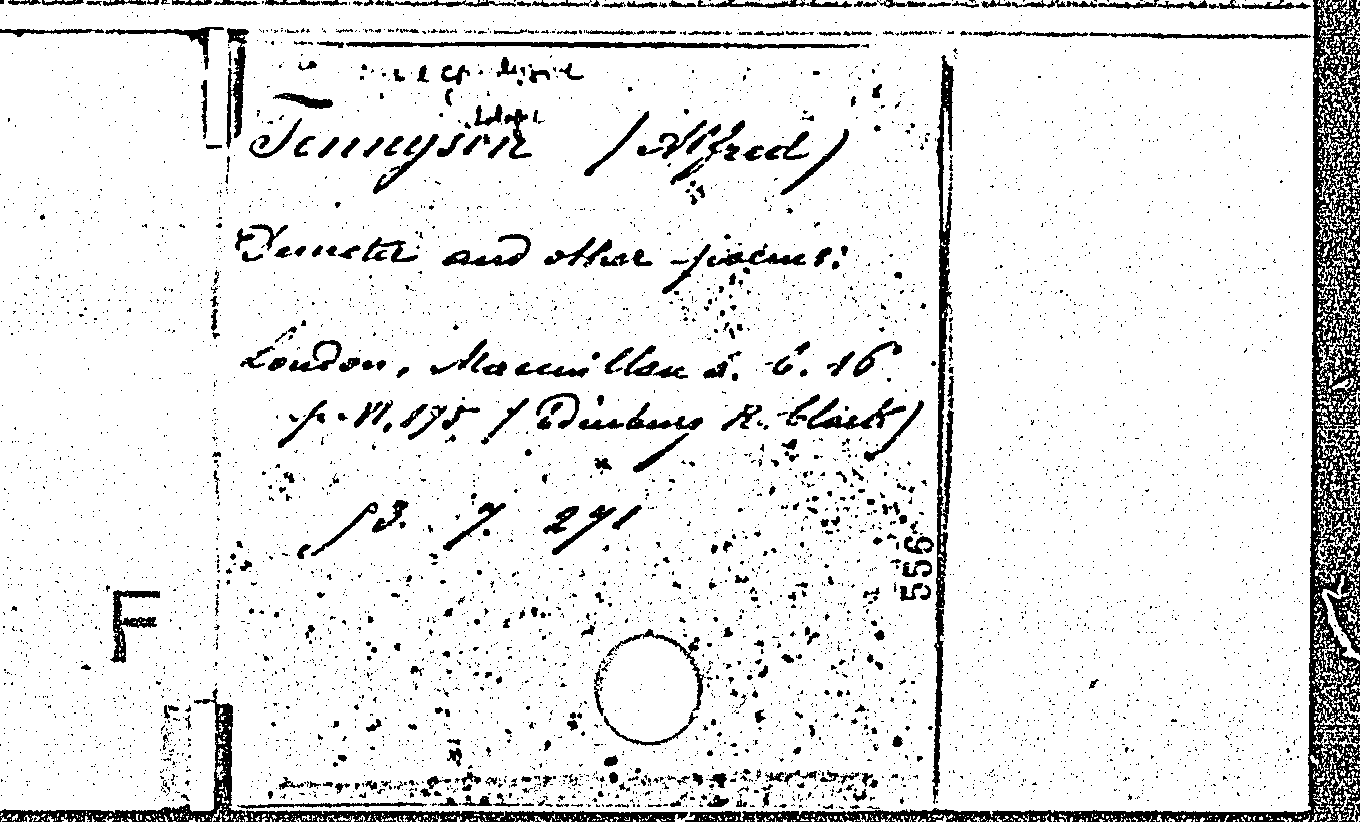 Tennyson (Alfred)
Demeter and other poems:
London, Macmillan a. C. 16
p. VI, 175 (Edinburg R. Clark)
f 3. 7. 271
556